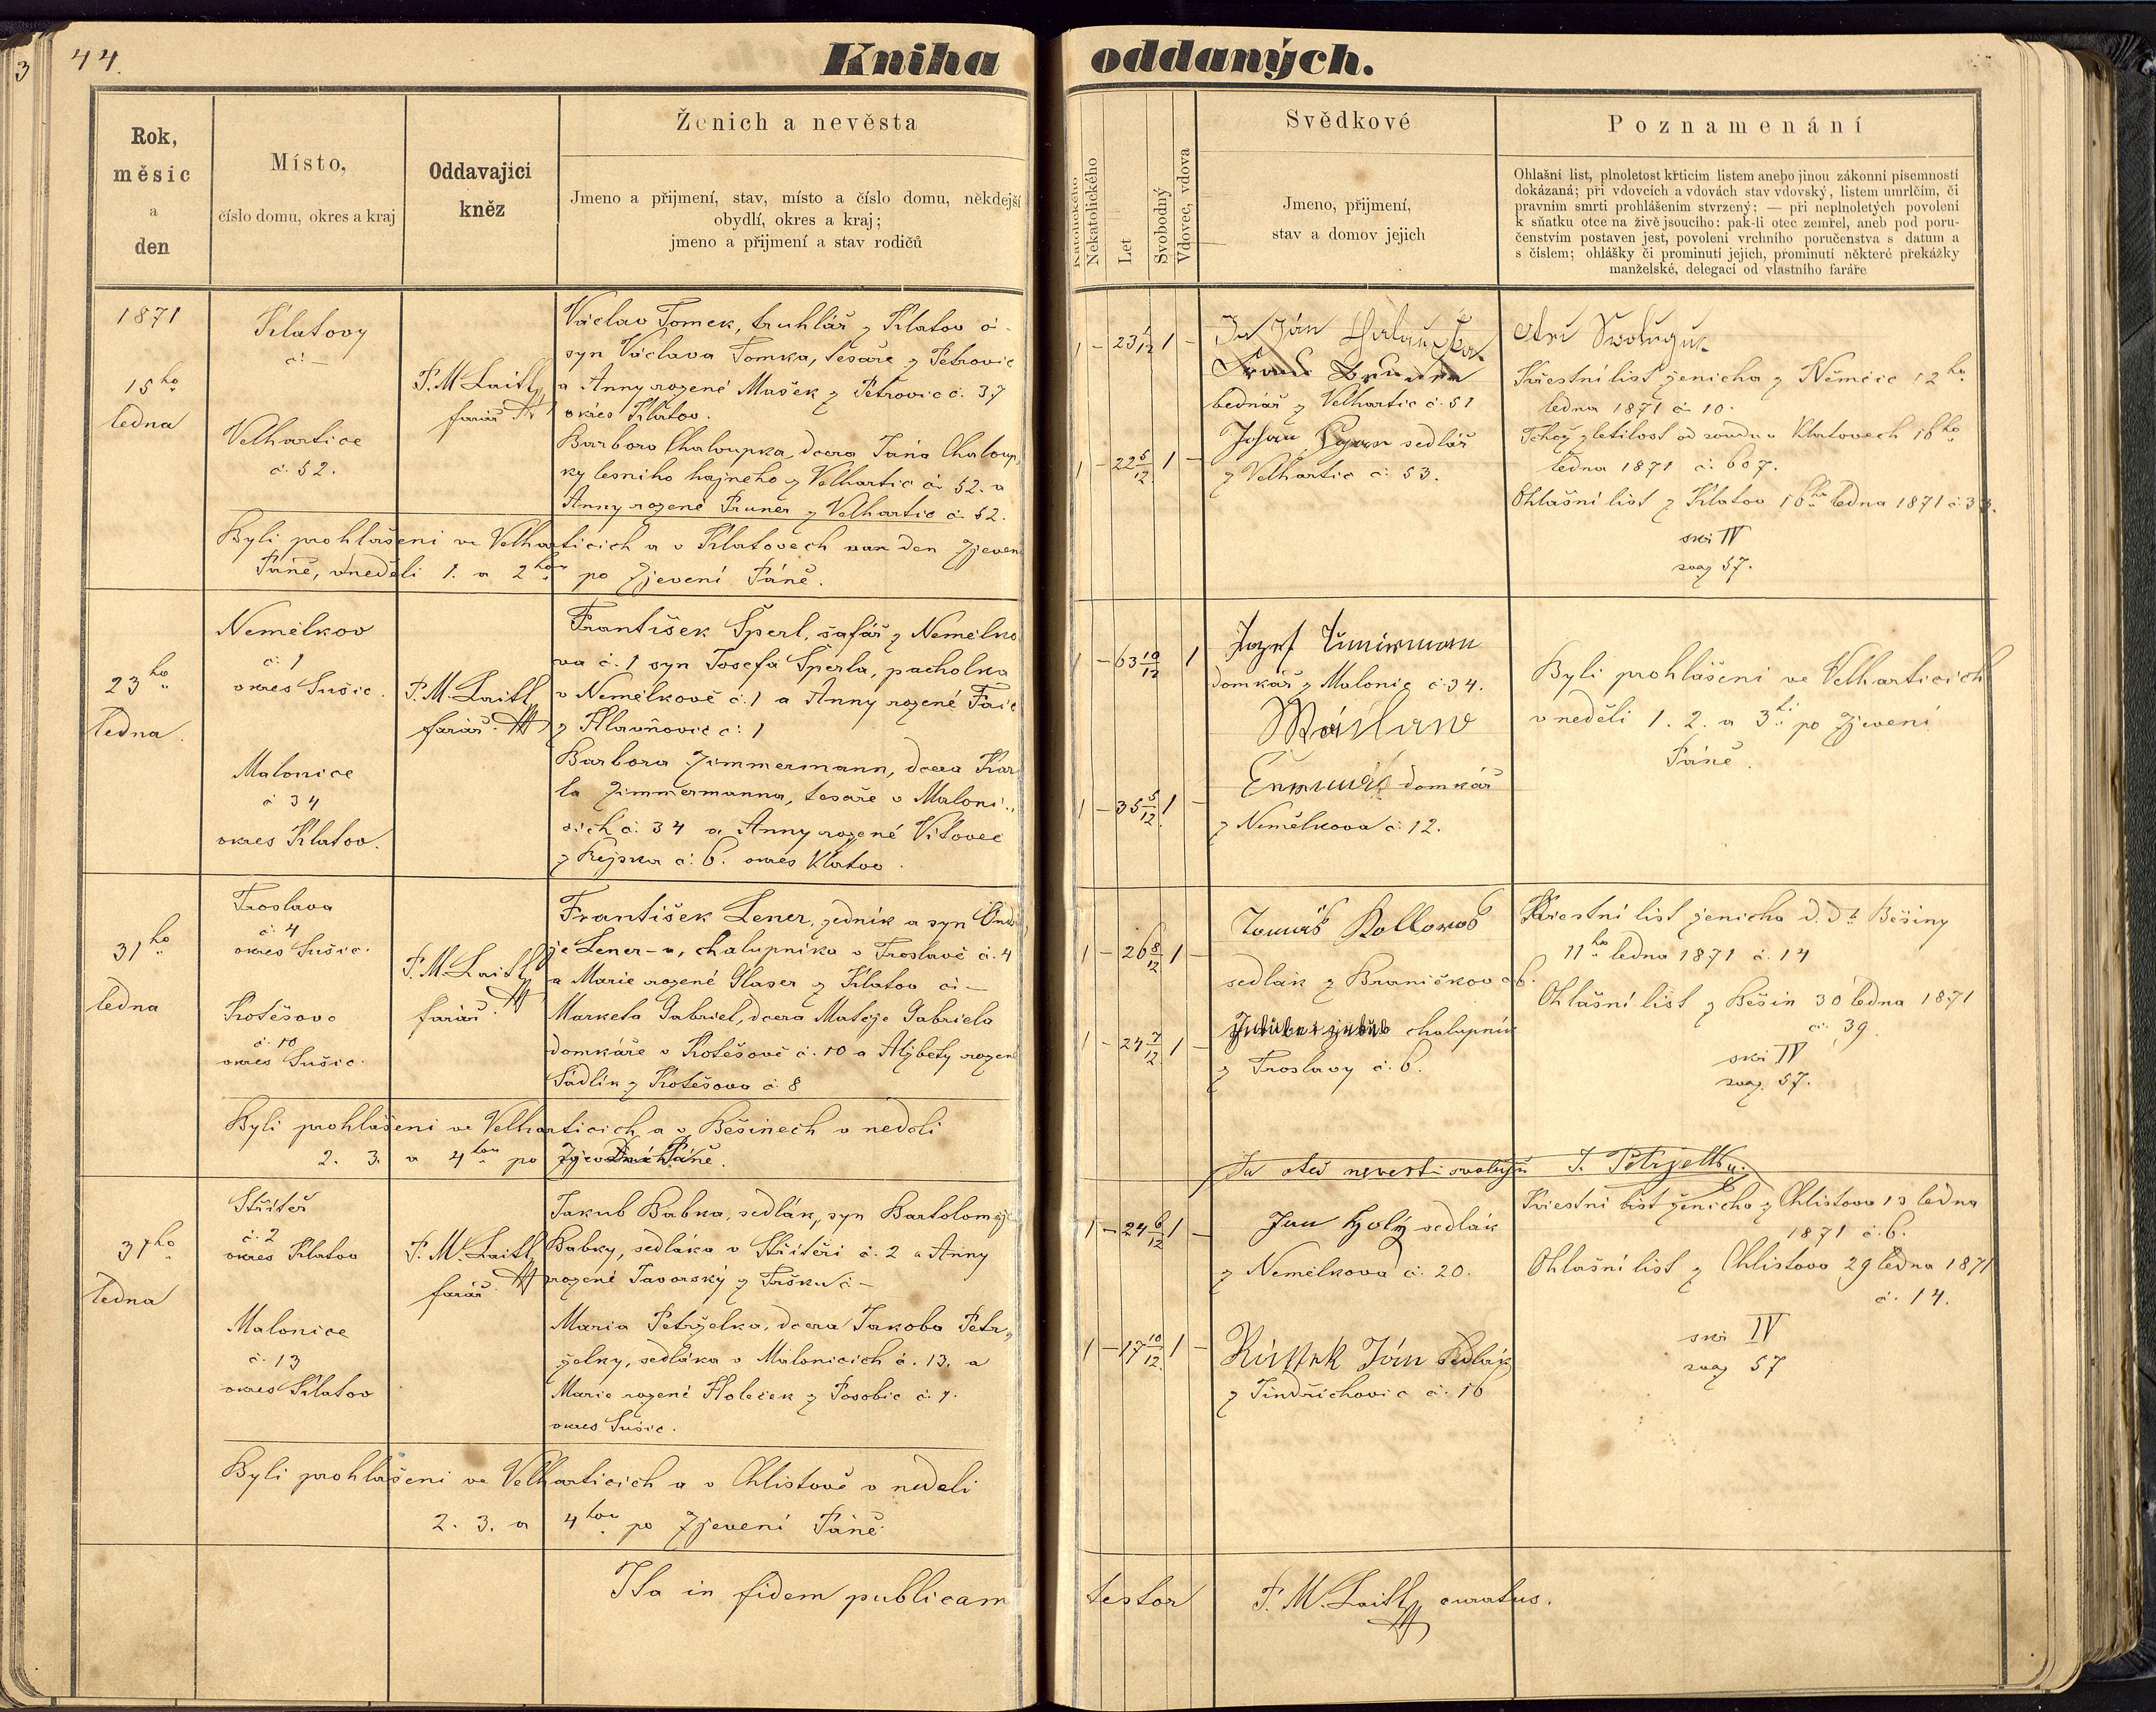 3
44.
Kniha oddaných.
Rok,
měsíc
a
den
Místo,
číslo domu, okres a kraj
Oddavající
kněz
Ženich a nevěsta
Jmeno a přijmení, stav, místo a číslo domu, někdejší
obydlí, okres a kraj;
jmeno a přijmení a stav rodičů
Katolického
Nekatolického
Let
Svobodný
Vdovec, vdova
Svědkové
Jmeno, přijmení,
stav a domov jejich
Poznamenání
Ohlašní list, plnoletost křticím listem anebo jinou zákonní písemností
dokázaná; při vdovcích a vdovách stav vdovský, listem umrlčím, či
pravním smrti prohlášením stvrzený; — při neplnoletých povolení
k sňatku otce na živě jsoucího: pak-li otec zemřel, aneb pod poru-
čenstvím postaven jest, povolení vrchního poručenstva s datum a
s číslem; ohlášky či prominutí jejich, prominutí některé překážky
manželské, delegací od vlastního faráře
1871
15ho
ledna
Klatovy
č: —
Velhartice
č. 52.
F. M. Laitl
farář
Václav Tomek, truhlář z Klatov č -
syn Václava Tomka, tesaře z Petrovic
a Anny rozené Mašek z Petrovic č. 37
okres Klatov.
Barbora Chaloupka, dcera Jána Chaloup
ky lesního hajného z Velhartic č. 52. a
Anny rozené Pruner z Velhartic č. 52.
Byli prohlášeni ve Velharticích a v Klatovech na den Zjevení
Páně, v neděli 1. a 2hou po Zjevení Páně.
1 — 23 1/12 1 —
1 — 22 5/12 1 —
Ja Ján
bednář z Velhartic č. 51
Johan sedlář
z Velhartic č. 53.
Křestní list ženicha z Němčic 12ho
ledna 1871 č. 10.
Téhož zletilost od soudu v Klatovech 16ho
ledna 1871 č. 607.
Ohlašní list z Klatov 16ho ledna 1871 č. 33.
IV
svaz 57.
23ho
ledna.
Nemělkov
č. 1
okres Sušic.
Malonice
č 34
okres Klatov.
F. M. Laitl
farář.
František Šperl, šafář z Nemělko
va č. 1 syn Josefa Šperla, pacholka
v Nemělkově č. 1 a Anny rozené
z Hlavňovic č: 1
Barbora Zimmermann, dcera Kar
la Zimmermanna, tesaře v Maloni
cích č. 34 a Anny rozené Vítovec
z č. 6. okres Klatov.
1 — 63 10/12 1
1 — 35 5/12 1 —
Jozef
domkář z Malonic č. 34.
domkář
z Nemělkova č. 12.
Byli prohlášeni ve Velharticích
v neděli 1. 2. a 3tí po Zjevení
Páně.
31ho
ledna
Froslava
č. 4
okres Sušic.
Kotěšov
č. 10
okres Sušic.
F. M. Laitl
farář.
František Lener, zedník a syn Ondř
je Lener-a, chalupníka v Froslavě č. 4
a Marie rozené Glaser z Klatov č: —
Marketa Gabriel, dcera Matěje Gabriela
domkáře v Kotěšově č. 10 a Alžbety rozené
Sádlík z Kotěšova č. 8
Byli prohlášeni ve Velharticích a v Běšinech v neděli
2. 3. a 4tou po Zjevení Páně.
1 — 26 8/12 1 —
1 — 24 7/12 1 —
Tomáš
sedlák z Braničkov č 6.
chalupník
z Froslavy č. 6.
Křestní list ženicha d. dt. Běšiny
11ho ledna 1871 č. 14
Ohlašní list z Běšin 30 ledna 1871
č. 39.
IV
svaz. 57.
31ho
ledna
Střítěř
č. 2
okres Klatov
Malonice
č. 13
okres Klatov
F. M. Laitl
farář.
Jakub Babka, sedlák, syn Bartoloměje
Babky, sedláka v Stříteři č. 2 a Anny
rozené Javorský z č —
Maria Petrželka, dcera Jakoba Petr„
želky, sedláka v Malonicích č. 13. a
Marie rozené Holeček z Posobic č. 7.
okres Sušic.
Byli prohlášeni ve Velharticích a v Chlistově v neděli
2. 3. a 4tou po Zjevení Páně.
1 — 24 6/12 1 —
1 — 17 10/12 1 —
Ja otec nevesti svoluju J. Petrzelka.
Jan Holý sedlák
z Nemělkova č. 20.
Ján sedlák
z Jindřichovic č. 16
Křestní list ženicha z Chlistova 13 ledna
1871 č. 6.
Ohlašní list z Chlistova 29 ledna 1871
č. 14.
IV
svaz 57
Ita in fidem publicam testor F. M. Laitl, curatus.